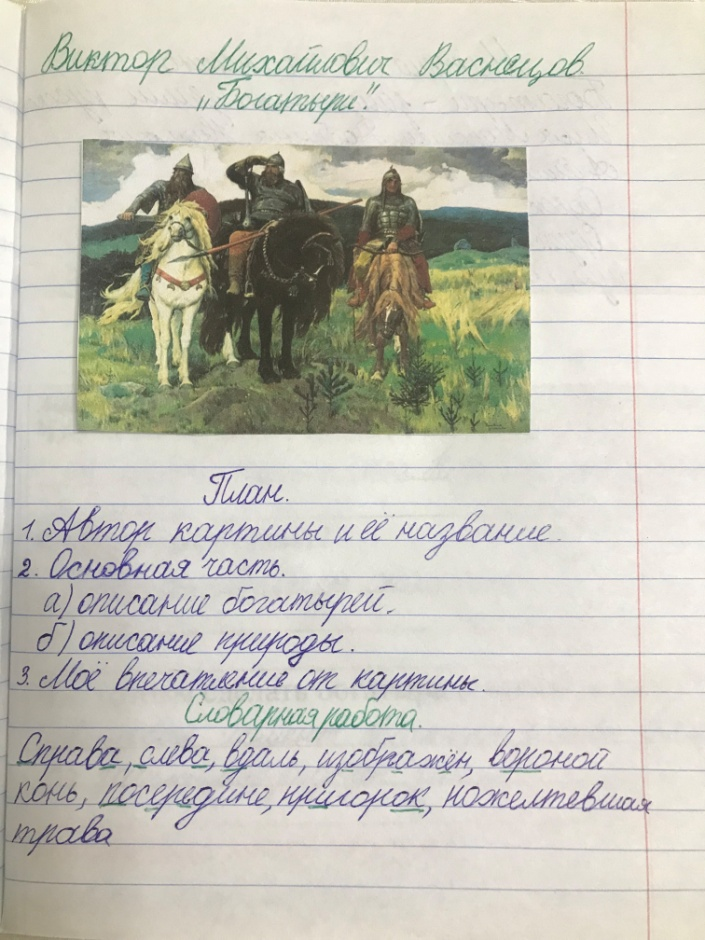 Виктор Михайлович Васнецов.
„Богатыри".
План.
1. Автор картины и её название.
2. Основная часть.
а) описание богатырей.
б) описание природы.
3. Моё впечатление от картины.
Словарная работа.
Справа, слева, вдаль, изображён, вороной
конь, посередине, пригорок, пожелтевшая
трава